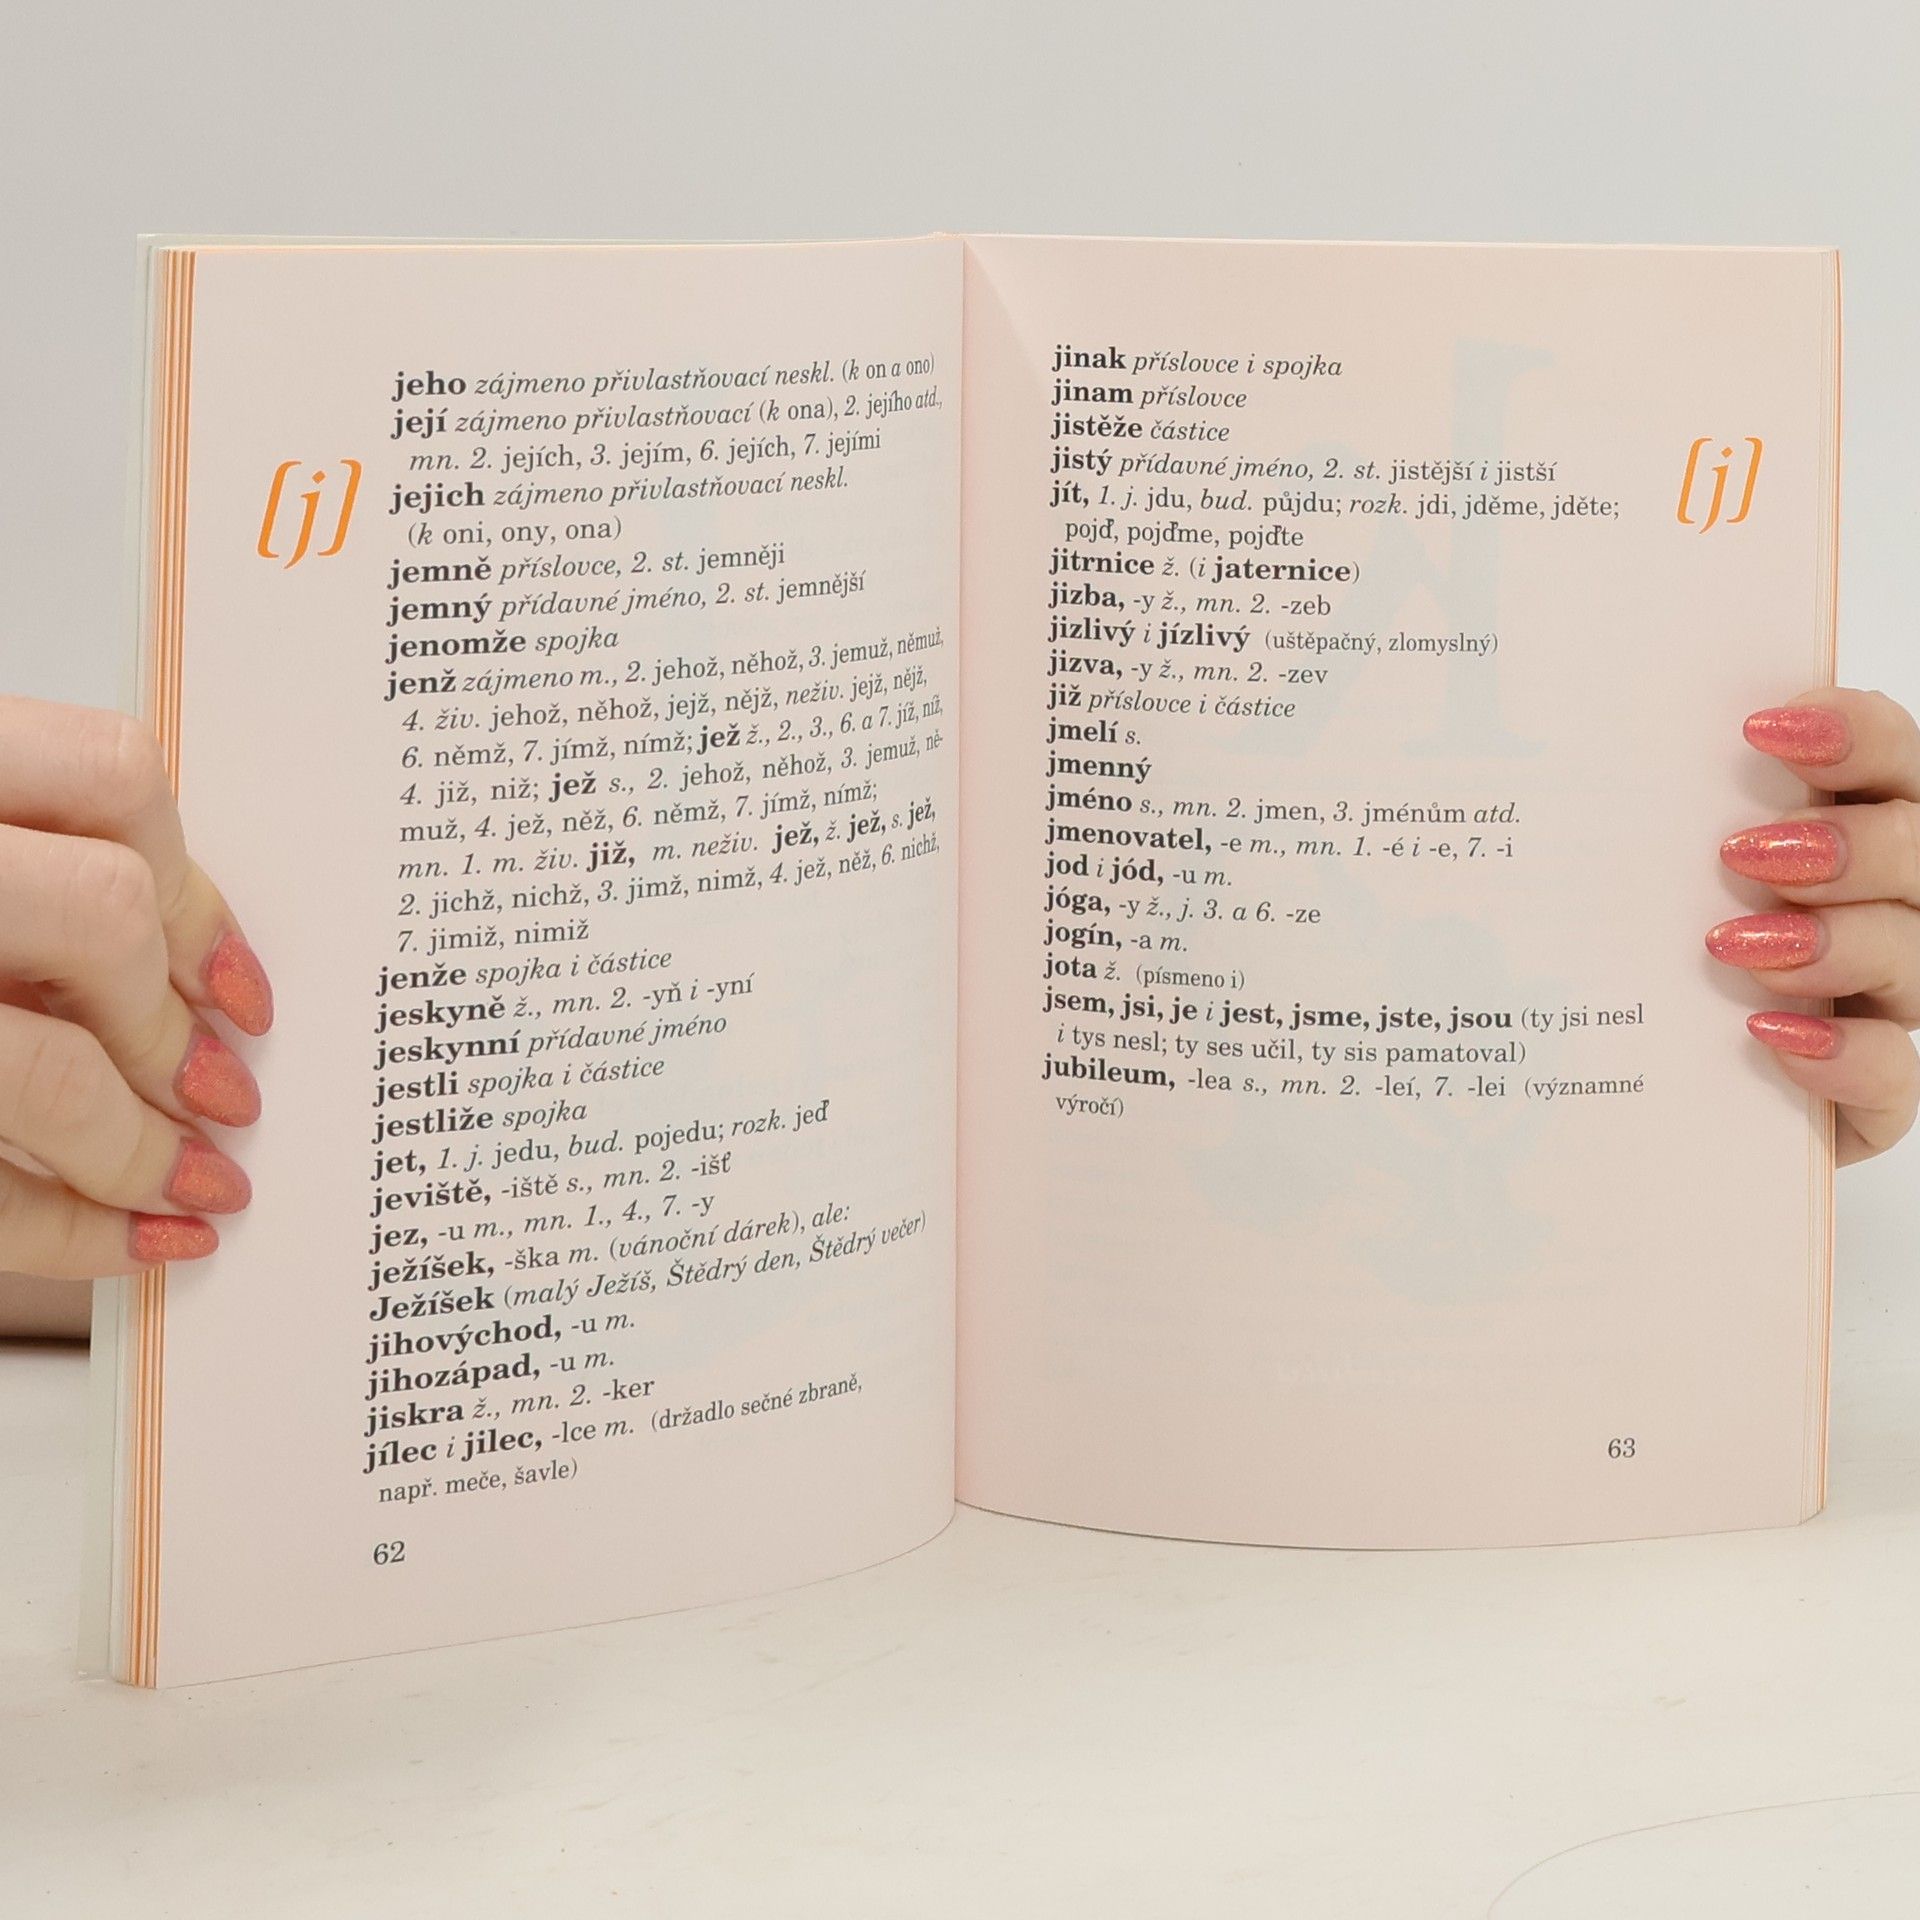 [j]
jeho zájmeno přivlastňovací neskl. (k on a ono)
její zájmeno přivlastňovací (k ona), 2. jejího atd.,
mn. 2. jejích, 3. jejím, 6. jejích, 7. jejími
jejich zájmeno přivlastňovací neskl.
(k oni, ony, ona)
jemně příslovce, 2. st. jemněji
jemný přídavné jméno, 2. st. jemnější
jenomže spojka
jenž zájmeno m., 2. jehož, něhož, 3. jemuž, němuž,
4. živ. jehož, něhož, jejž, nějž, neživ. jejž, nějž,
6. němž, 7. jímž, nímž; jež ž., 2., 3., 6. a 7. jíž, níž,
4. již, niž; jež s., 2. jehož, něhož, 3. jemuž, ně-
muž, 4. jež, něž, 6. němž, 7. jímž, nímž;
mn. 1. m. živ. již, m. neživ. jež, ž. jež, s. jež,
2. jichž, nichž, 3. jimž, nimž, 4. jež, něž, 6. nichž,
7. jimiž, nimiž
jenže spojka i částice
jeskyně ž., mn. 2. -yň i -yní
jeskynní přídavné jméno
jestli spojka i částice
jestliže spojka
jet, 1. j. jedu, bud. pojedu; rozk. jeď
jeviště, -iště s., mn. 2. -išť
jez, -u m., mn. 1., 4., 7. -y
ježíšek, -ška m. (vánoční dárek), ale:
Ježíšek (malý Ježíš, Štědrý den, Štědrý večer)
jihovýchod, -u m.
jihozápad, -u m.
jiskra ž., mn. 2. -ker
jílec i jilec, -lce m. (držadlo sečné zbraně,
např. meče, šavle)
62
jinak příslovce i spojka
jinam příslovce
jistěže částice
jistý přídavné jméno, 2. st. jistější i jistší
jít, 1. j. jdu, bud. půjdu; rozk. jdi, jděme, jděte;
pojď, pojďme, pojďte
jitrnice ž. (i jaternice)
jizba, -y ž., mn. 2. -zeb
jizlivý i jízlivý (uštěpačný, zlomyslný)
jizva, -y ž., mn. 2. -zev
již příslovce i částice
jmelí s.
jmenný
jméno s., mn. 2. jmen, 3. jménům atd.
jmenovatel, -e m., mn. 1. -é i -e, 7. -i
jod i jód, -u m.
jóga, -y ž., j. 3. a 6. -ze
jogín, -a m.
jota ž. (písmeno i)
jsem, jsi, je i jest, jsme, jste, jsou (ty jsi nesl
i tys nesl; ty ses učil, ty sis pamatoval)
jubileum, -lea s., mn. 2. -leí, 7. -lei (významné
výročí)
[j]
63